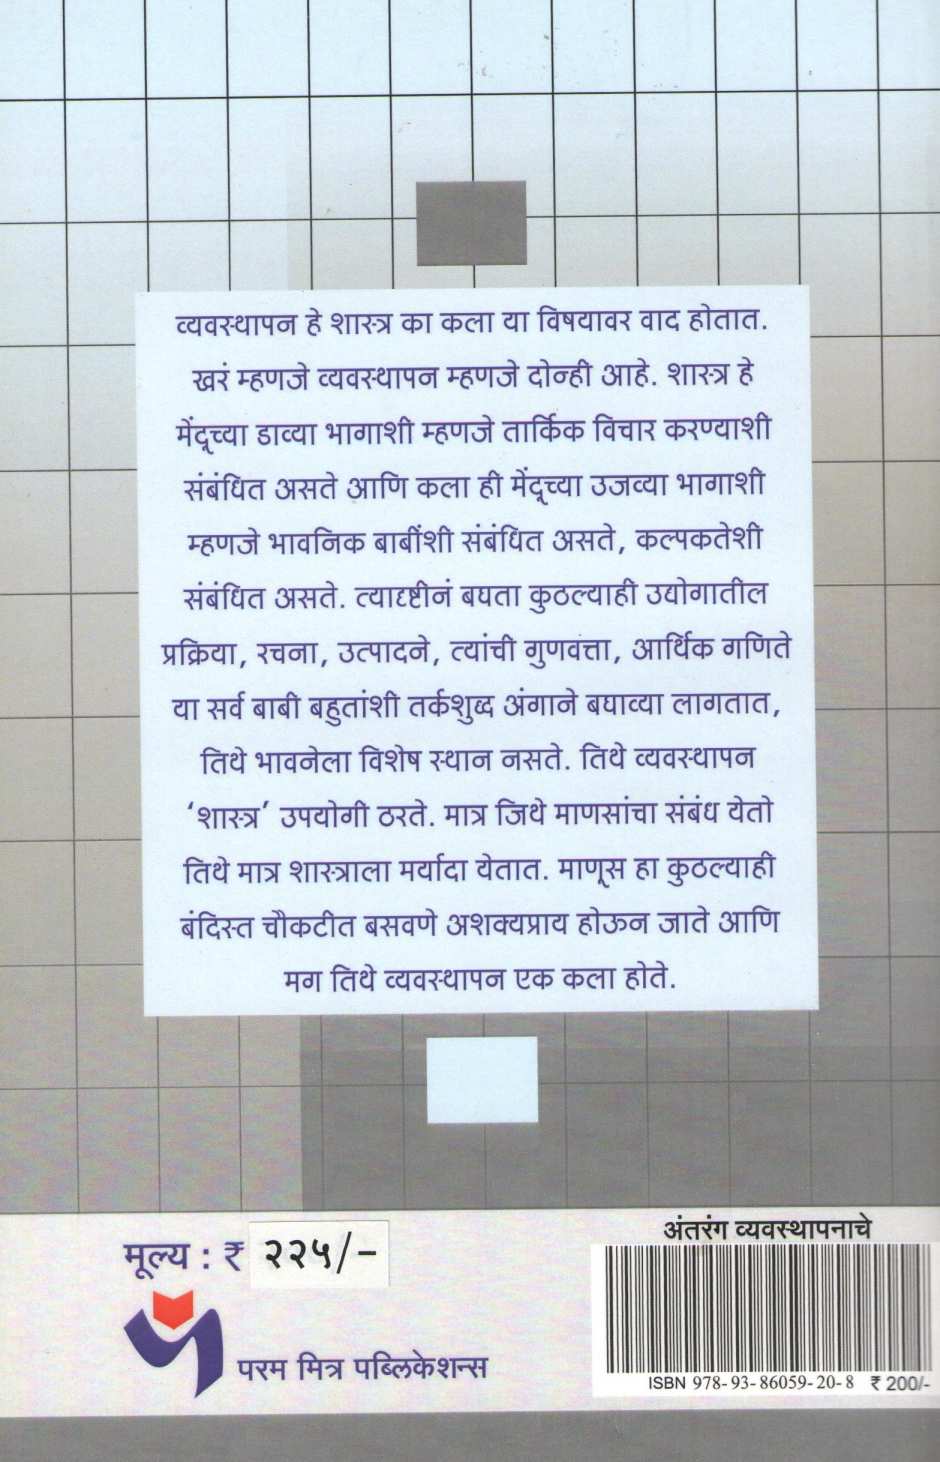 व्यवस्थापन हे शास्त्र का कला या विषयावर वाद होतात.
खरं म्हणजे व्यवस्थापन म्हणजे दोन्ही आहे. शास्त्र हे
मेंदूच्या डाव्या भागाशी म्हणजे तार्किक विचार करण्याशी
संबंधित असते आणि कला ही मेंदूच्या उजव्या भागाशी
म्हणजे भावनिक बाबींशी संबंधित असते, कल्पकतेशी
संबंधित असते. त्यादृष्टीनं बघता कुठल्याही उद्योगातील
प्रक्रिया, रचना, उत्पादने, त्यांची गुणवत्ता, आर्थिक गणिते
या सर्व बाबी बहुतांशी तर्कशुद्ध अंगाने बघाव्या लागतात,
तिथे भावनेला विशेष स्थान नसते. तिथे व्यवस्थापन
‘शास्त्र’ उपयोगी ठरते. मात्र जिथे माणसांचा संबंध येतो
तिथे मात्र शास्त्राला मर्यादा येतात. माणूस हा कुठल्याही
बंदिस्त चौकटीत बसवणे अशक्यप्राय होऊन जाते आणि
मग तिथे व्यवस्थापन एक कला होते.
मूल्य : ₹ २२५/-
परम मित्र पब्लिकेशन्स
अंतरंग व्यवस्थापनाचे
ISBN 978-93-86059-20-8 ₹ 200/-